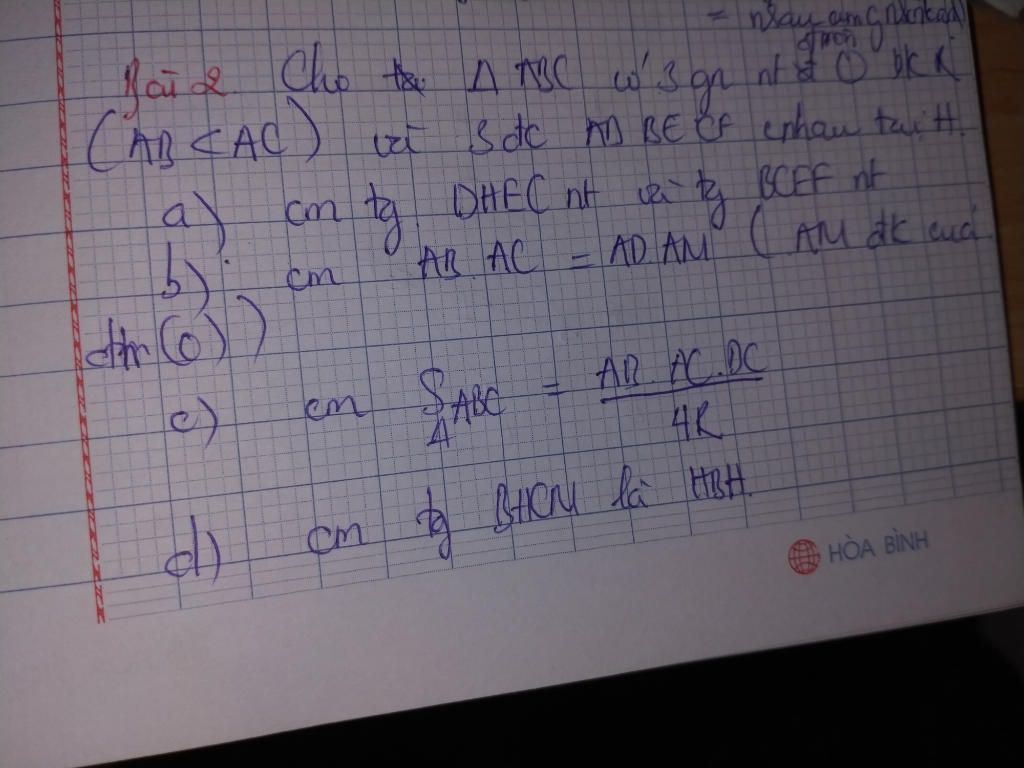 = nhau cm
Bài 2 Cho Δ ABC có 3 gn nt đ bk R
(AB < AC) và 3 đc AD BE CF cnhau tại H.
a) cm tg DHEC nt và tg BCEF nt
b) cm AB. AC = AD. AM ( AM đk của
đtr (O) )
c) cm SΔABC = AB. AC. DC / 4R
d) cm tg BHCM là HBH.
HÒA BÌNH